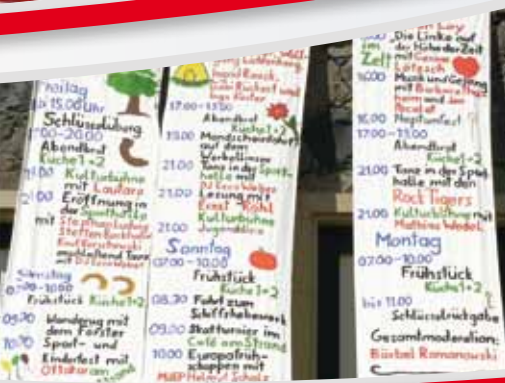 Freitag
ab 15.00 Uhr
Schlüsselübung
17:00-20.00
Abendbrot
Küche 1+2
Kulturbühne
mit Lautaro
Eröffnung in
der Sporthalle
mit Stephan Ludwig
Steffen
anschließend Tanz
mit DJ Eero Weber
Samstag
07.00-10.00
Frühstück Küche 1+2
09.30 Wanderung mit
dem Förster
10.00 Sport- und
Kinderfest mit
Ottokar am
Strand
Ingrid Rasch,
Gabi Rückert und
Ingo
17.00-19.00
Abendbrot
Küche 1+2
19.00 Mondscheinfahrt
auf dem
Werbellinsee
21.00 Tanz in der Sport-
halle mit
DJ Eero Weber
21.00 Lesung mit
Ernst Röhl
Kulturbühne
21.00 Jugenddisco
Sonntag
07.00-10.00
Frühstück
Küche 1+2
08.30 Fahrt zum
Schiffshebewerk
09.00 Skatturnier im
Café am Strand
10.00 Europafrüh-
schoppen mit
MdEP Helmut Scholz
Die Linke auf
der Höhe der Zeit
im Zelt
mit Gesine
Lötzsch
Musik und Gesang
mit Barbara
und
Neptunfest
17.00-19.00
Abendbrot
Küche 1+2
21.00 Tanz in der Sport-
halle mit den
Rock Tigers
21.00 Kulturbühne mit
Mathias Wedel
Montag
07.00-10.00
Frühstück
Küche 1+2
bis 11.00
Schlüsselrückgabe
Gesamtmoderation:
Bärbel Romanowski